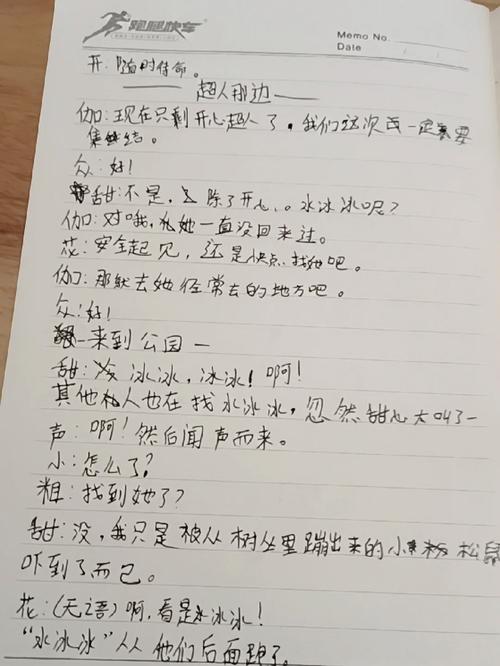 跑腿快车
Memo No.
Date
开：随时待命。
——超人那边——
伽：现在只剩开心超人了，我们这次一定要
集结。
众：好！
甜：不是，除了开心。。水冰冰呢？
伽：对哦，她一直没回来过。
花：安全起见，还是快点找她吧。
伽：那就去她经常去的地方吧。
众：好！
—来到公园—
甜：冰冰，冰冰！啊！
其他人也在找水冰冰，忽然甜心大叫了一
声：啊！然后闻声而来。
小：怎么了？
粗：找到她了？
甜：没，我只是被从树丛里蹦出来的小松鼠
吓到了而已。
花：（无语）啊，看是水冰冰！
“水冰冰”从他们后面跑了。